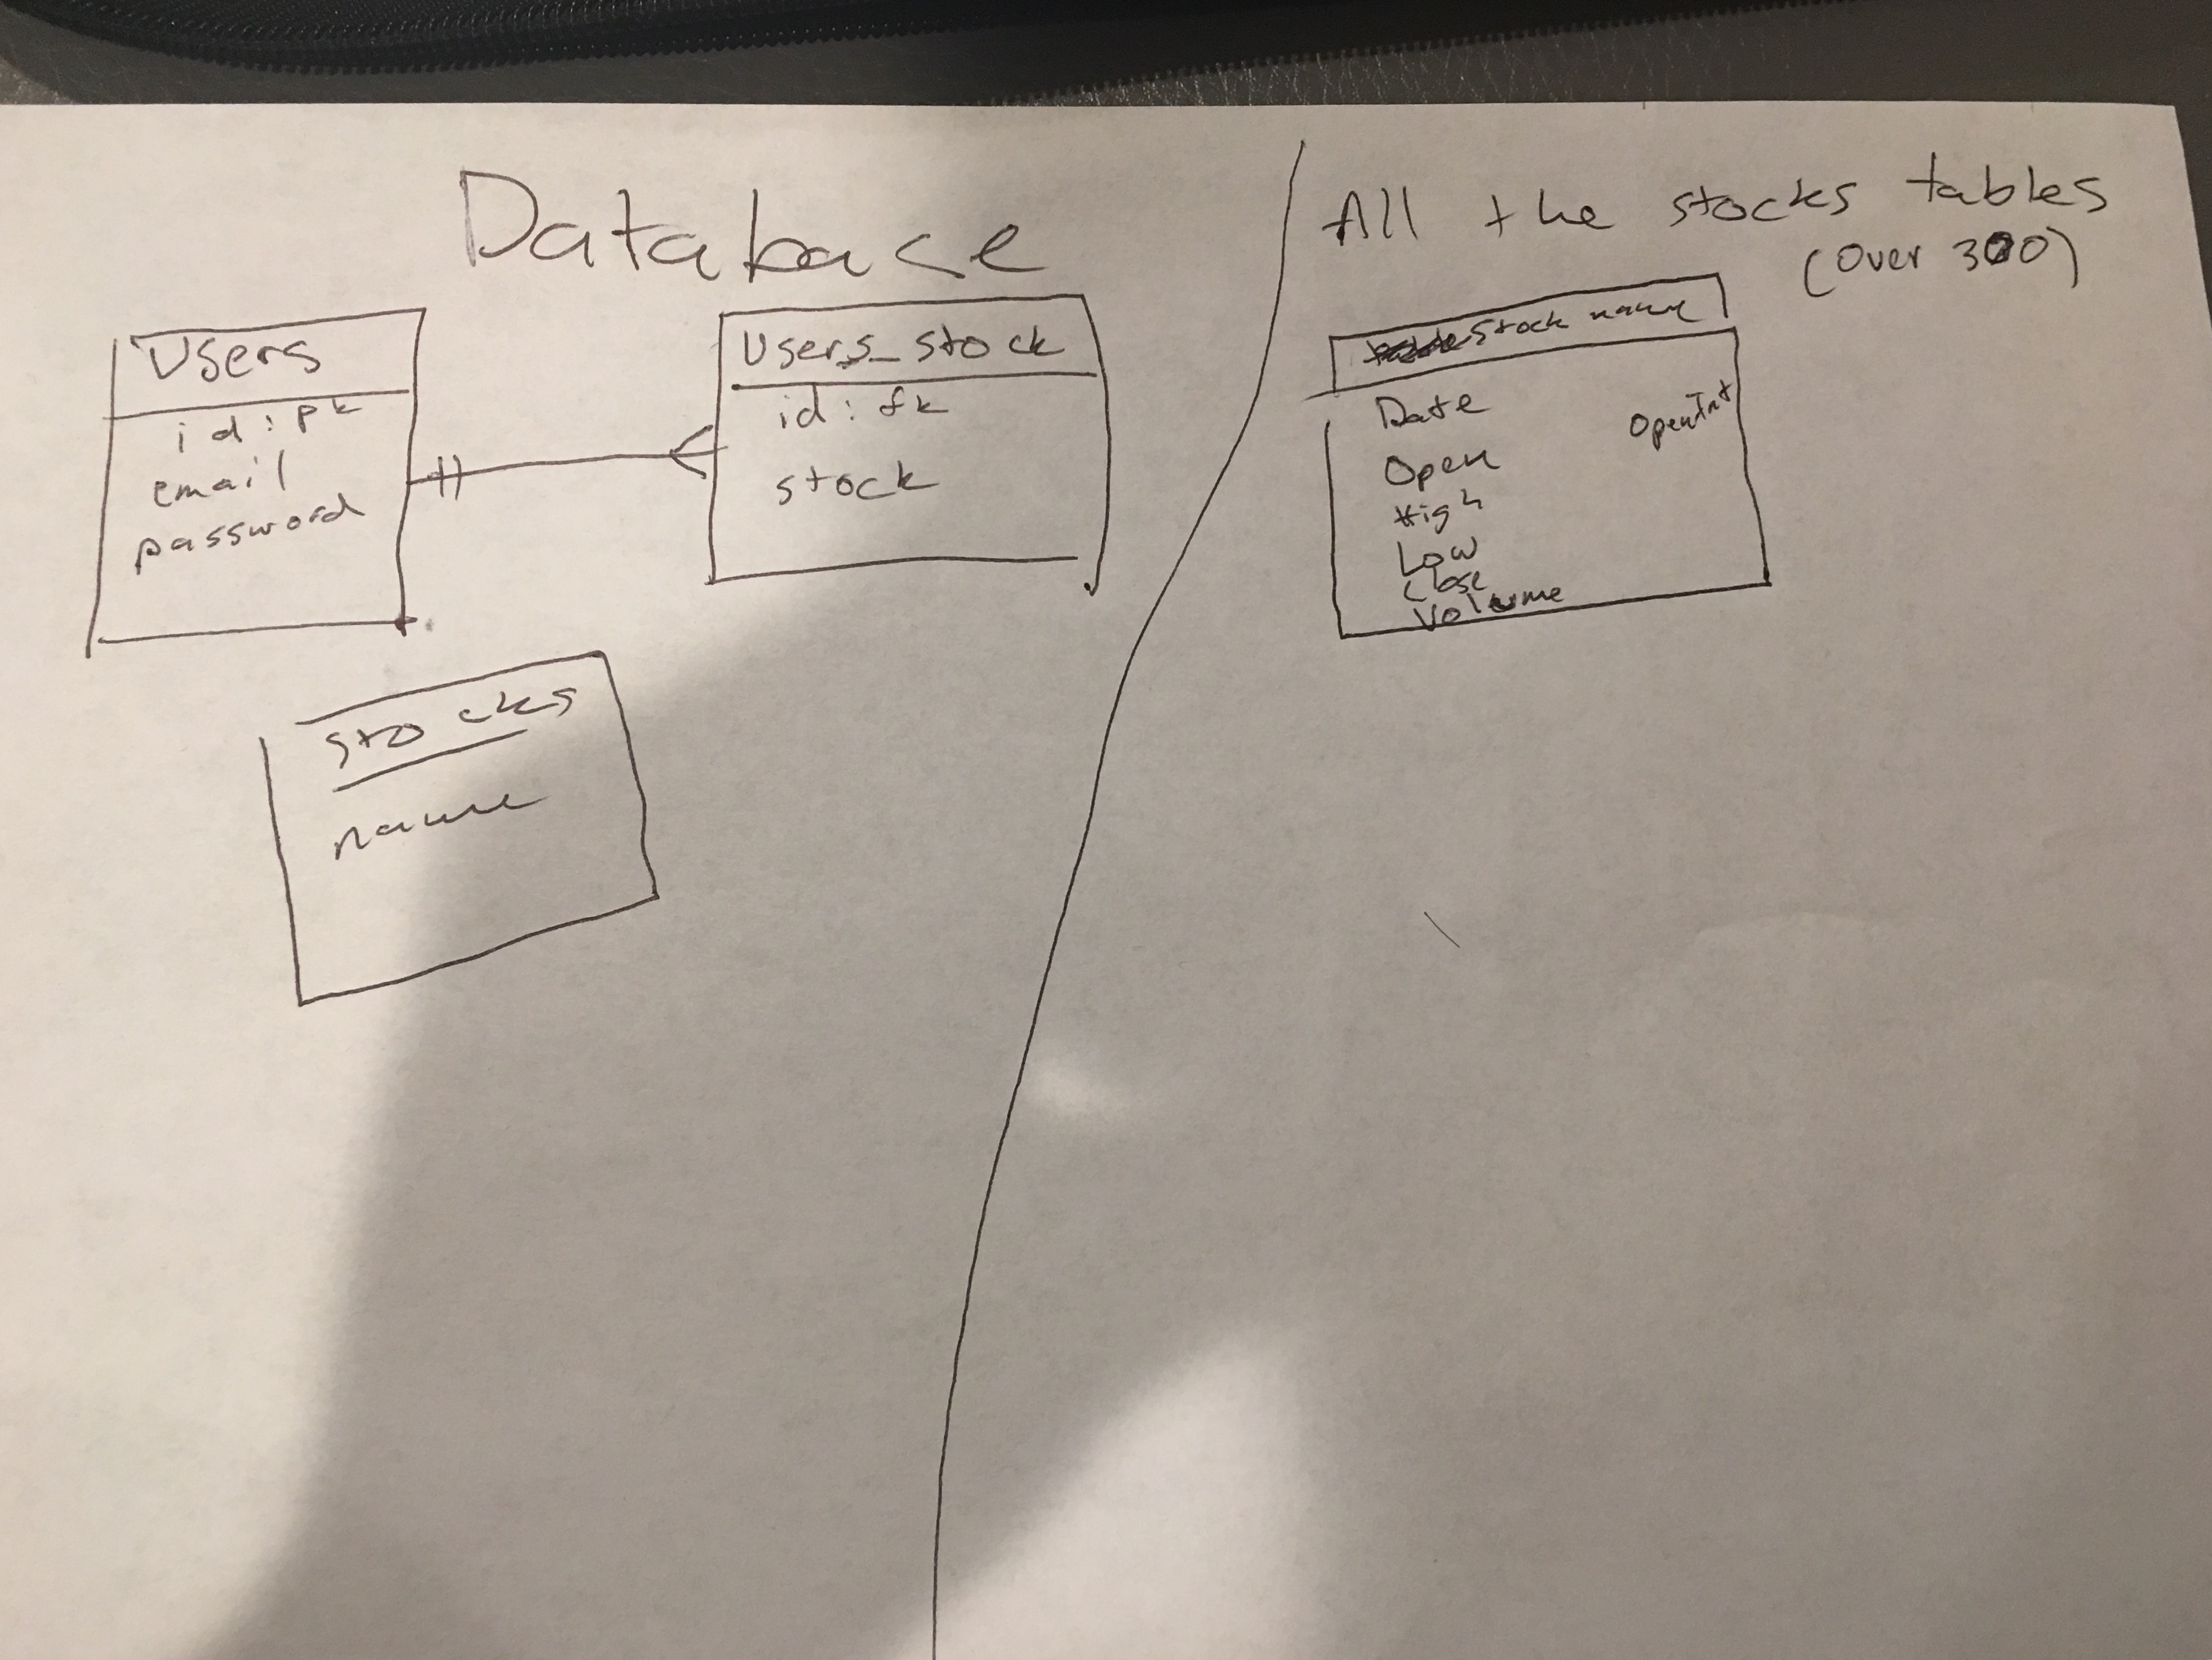 Database
Users
id: pk
email
password
Users_stock
id: fk
stock
stocks
name
All the stocks tables
(over 300)
Stock name
Date
OpenInt
Open
High
Low
Close
Volume